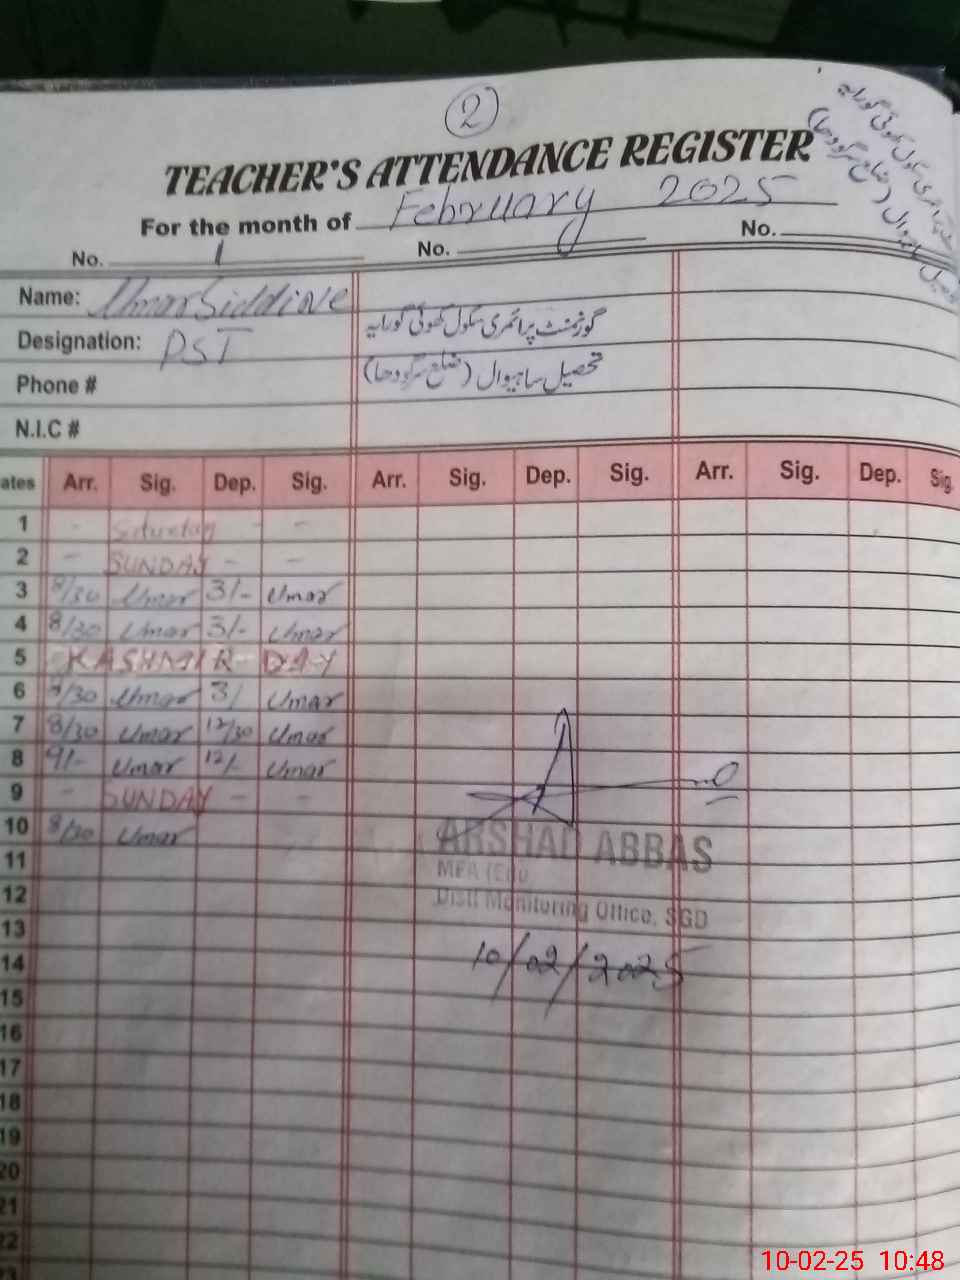 2
TEACHER'S ATTENDANCE REGISTER
For the month of February 2025
No. 1 No. No.
Name: Umar Siddique
Designation: PST
گورنمنٹ پرائمری سکول کھوئی گورایہ
Phone #
تحصیل ساہیوال (ضلع سرگودھا)
N.I.C #
ates Arr. Sig. Dep. Sig. Arr. Sig. Dep. Sig. Arr. Sig. Dep. Sig.
1 - Saturday - -
2 - SUNDAY - -
3 8/30 Umar 3/- Umar
4 8/30 Umar 3/- Umar
5 KASHMIR DAY
6 8/30 Umar 3/ Umar
7 8/30 Umar 12/30 Umar
8 9/- Umar 12/- Umar
9 - SUNDAY - -
10 8/30 Umar
ARSHAD ABBAS
11
MEA (Edu
12
Distt Monitoring Office, SGD
13
14 10/02/2025
15
16
17
18
19
20
21
22
23
10-02-25 10:48